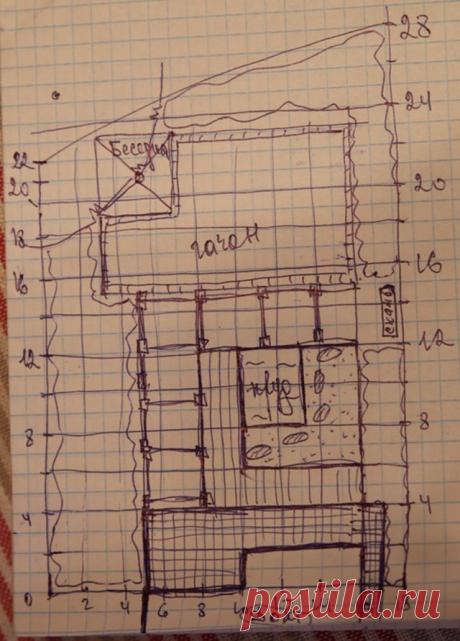 28
24
Беседка
22
20
20
18
газон
16
16
скамья
12
12
пруд
8
8
4
4
0 2 4 6 8
postila.ru